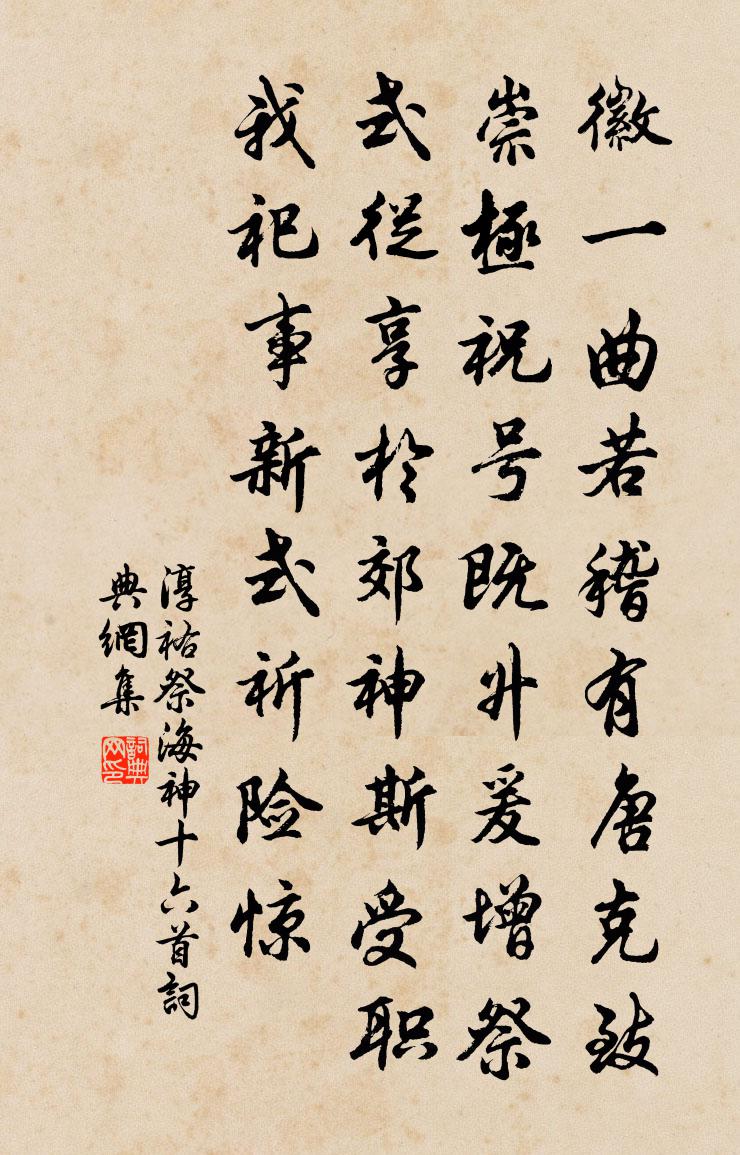 徽一曲若稽有唐克致
崇極祝号既升爰增祭
式從享於郊神斯受职
我祀事新式祈险惊
淳祐祭海神十六首詞
典網集
詞典网印